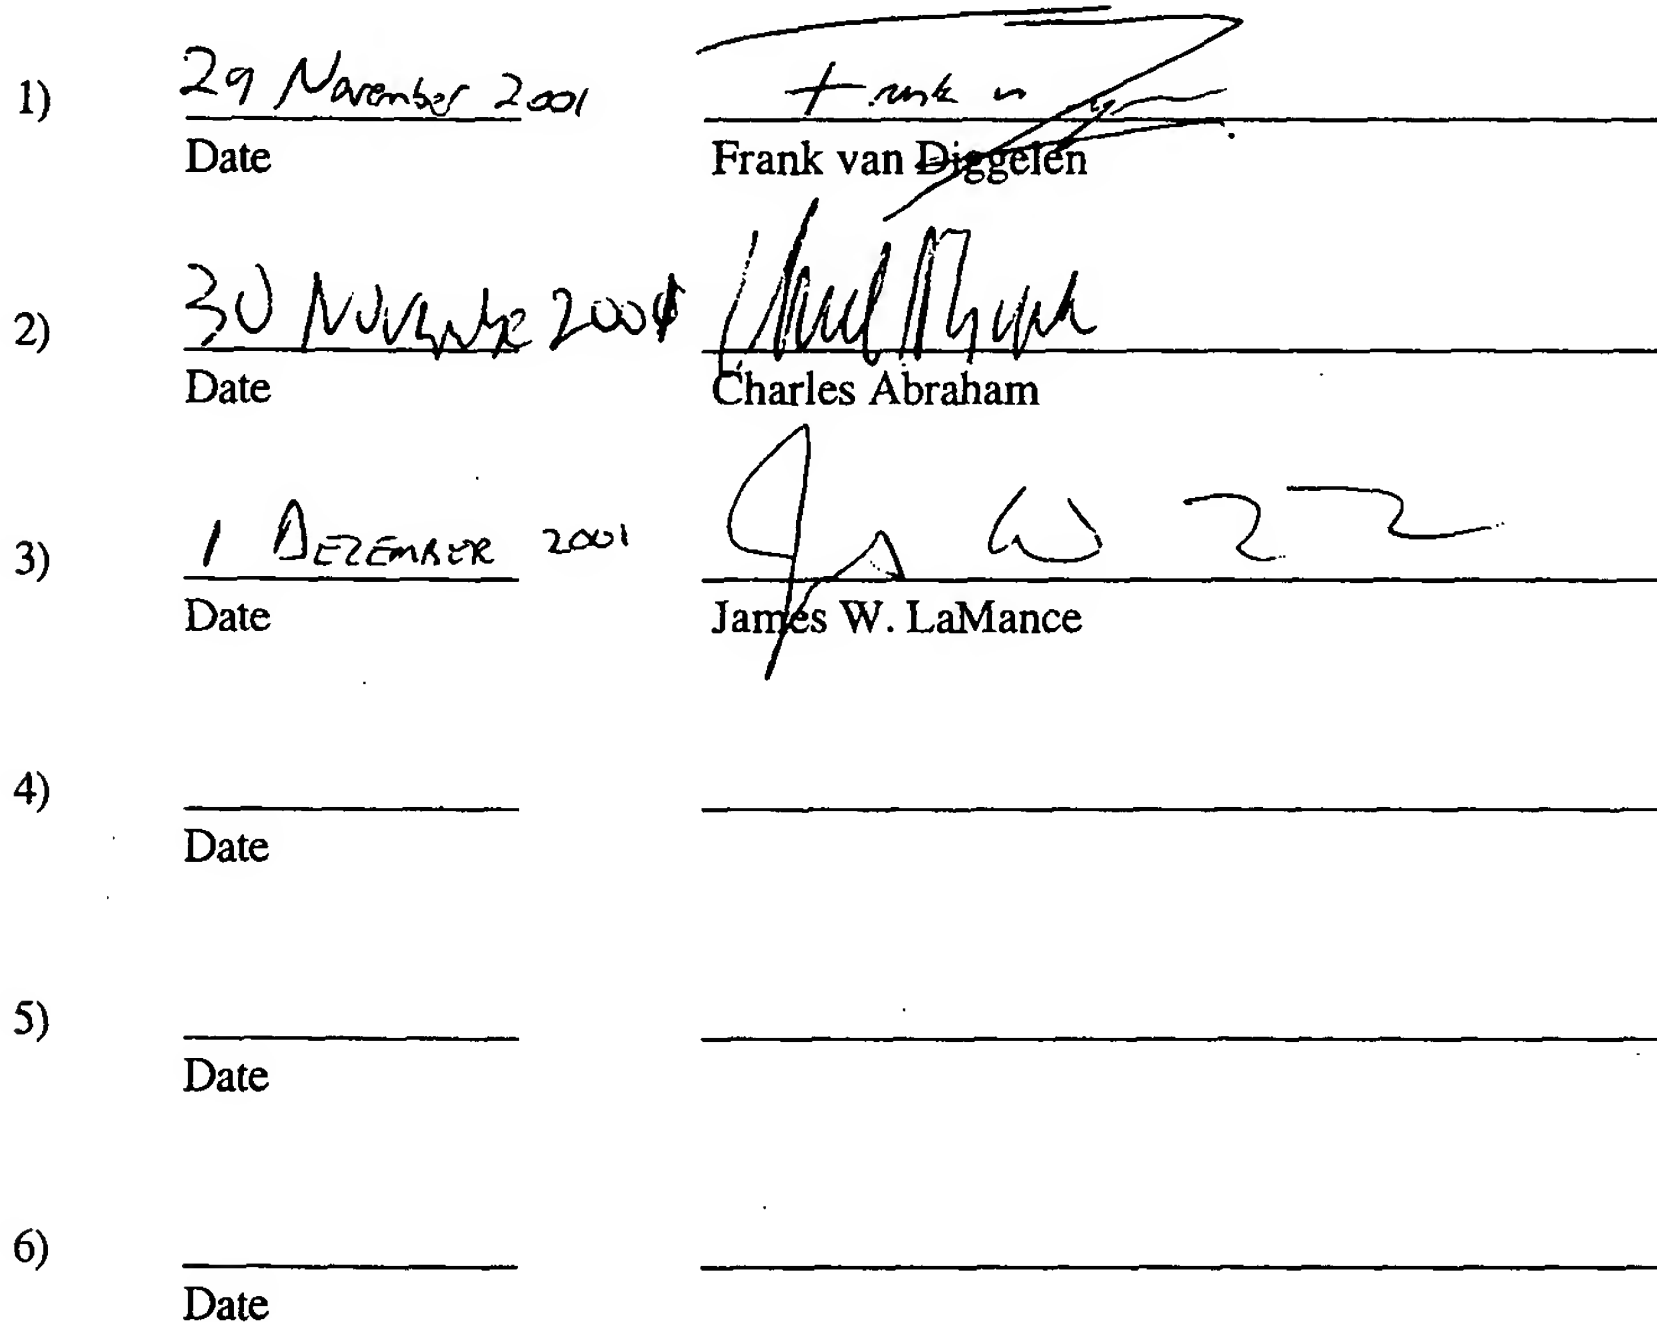 1) 29 November 2001
Date Frank van Diggelen
2) 30 November 2001
Date Charles Abraham
3) 1 DEZEMBER 2001
Date James W. LaMance
4)
Date
5)
Date
6)
Date